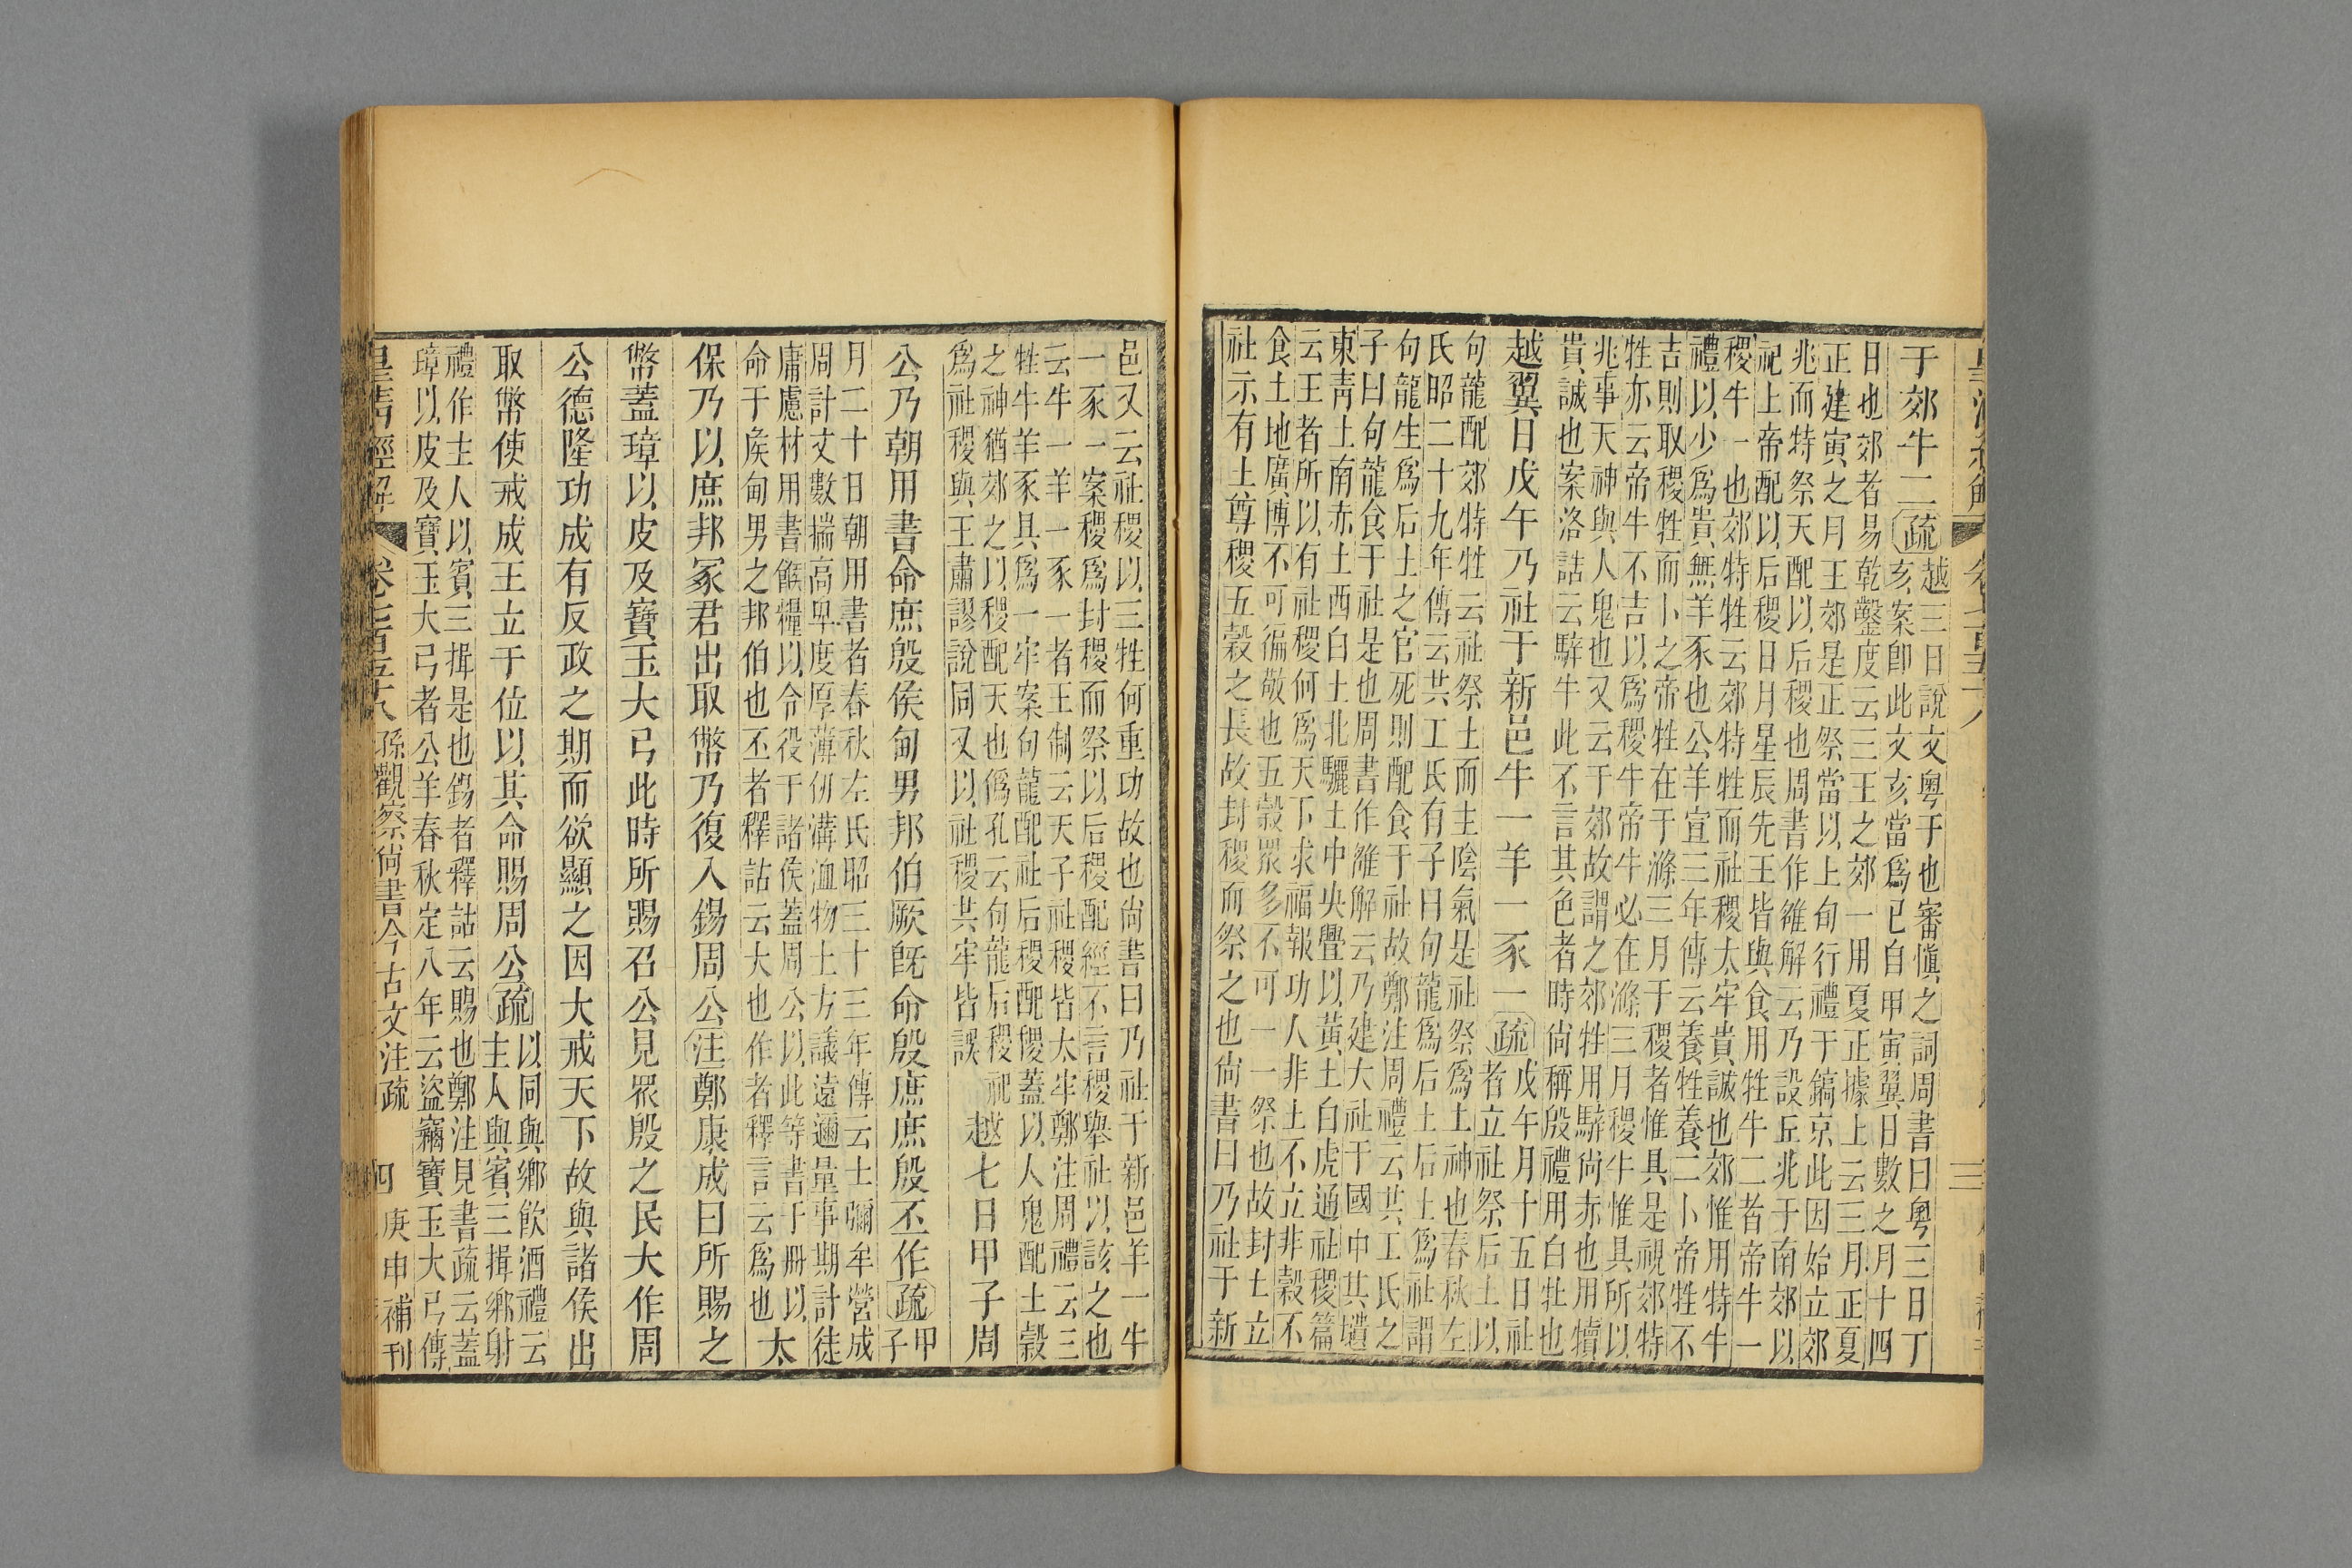 于郊牛二疏越三日說文粵于也審愼之詞周書曰粵三日丁
亥案卽此文亥當爲巳自甲寅翼日數之月十四
日也郊者易乾鑿度云三王之郊一用夏正據上云三月正夏
正建寅之月王郊是正祭當以上旬行禮于鎬京此因始立郊
兆而特祭天配以后稷也周書作雒解云乃設丘兆于南郊以
祀上帝配以后稷日月星辰先王皆與食用牲牛二者帝牛一
稷牛一也郊特牲云郊特牲而社稷太牢貴誠也郊惟用特牛
禮以少爲貴無羊豕也公羊宣三年傳云養牲養二卜帝牲不
吉則取稷牲而卜之帝牲在于滌三月于稷者惟具是視郊特
牲亦云帝牛不吉以爲稷牛帝牛必在滌三月稷牛惟具所以
兆事天神與人鬼也又云于郊故謂之郊牲用騂尙赤也用犢
貴誠也案洛誥云騂牛此不言其色者時尙稱殷禮用白牡也
越翼日戊午乃社于新邑牛一羊一豕一疏戊午月十五日社
者立社祭后土以
句龍配郊特牲云社祭土而主陰氣是社祭爲土神也春秋左
氏昭二十九年傳云共工氏有子曰句龍爲后土后土爲社謂
句龍生爲后土之官死則配食于社故鄭注周禮云共工氏之
子曰句龍食于社是也周書作雒解云乃建大社于國中其壝
東靑土南赤土西白土北驪土中央舋以黃土白虎通社稷篇
云王者所以有社稷何爲天下求福報功人非土不立非穀不
食土地廣博不可徧敬也五穀眾多不可一一祭也故封土立
社示有土尊稷五穀之長故封稷而祭之也尙書曰乃社于新
邑又云社稷以三牲何重功故也尙書曰乃社于新邑羊一牛
一豕一案稷爲封稷而祭以后稷配經不言稷舉社以該之也
云牛一羊一豕一者王制云天子社稷皆太牢鄭注周禮云三
牲牛羊豕具爲一牢案句龍配社后稷配稷蓋以人鬼配土穀
之神猶郊之以稷配天也僞孔云句龍后稷祀
爲社稷與王肅謬說同又以社稷共牢皆誤越七日甲子周
公乃朝用書命庶殷侯甸男邦伯厥旣命殷庶庶殷丕作疏甲
子
月二十日朝用書者春秋左氏昭三十三年傳云士彌牟營成
周計丈數揣高卑度厚薄仞溝洫物土方議遠邇量事期計徒
庸慮材用書餱糧以令役于諸侯蓋周公以此等書于冊以
命于矦甸男之邦伯也丕者釋詁云大也作者釋言云爲也太
保乃以庶邦冢君出取幣乃復入錫周公注鄭康成曰所賜之
幣蓋璋以皮及寶玉大弓此時所賜召公見眾殷之民大作周
公德隆功成有反政之期而欲顯之因大戒天下故與諸侯出
取幣使戒成王立于位以其命賜周公疏以同與鄉飮酒禮云
主人與賓三揖鄉射
禮作主人以賓三揖是也錫者釋詁云賜也鄭注見書疏云蓋
璋以皮及寶玉大弓者公羊春秋定八年云盜竊寶玉大弓傳
皇淸經解 卷三百五十八 孫觀察尙書今古文注疏 四 庚申補刊